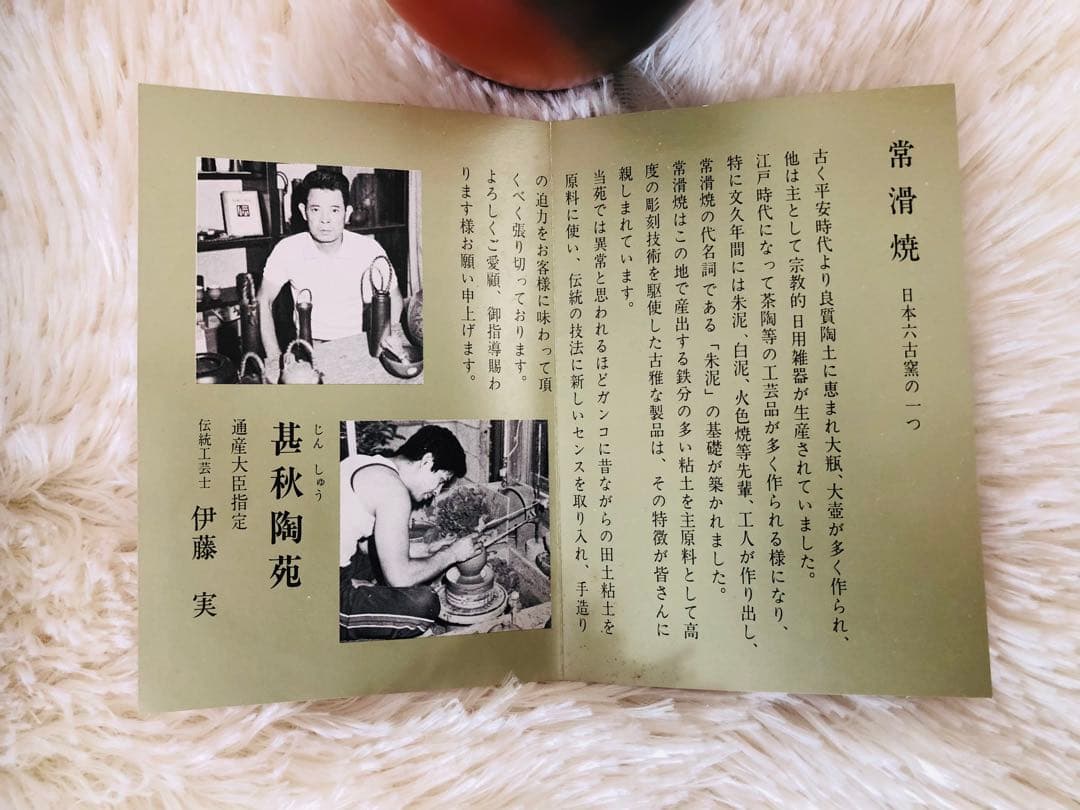 常滑焼 日本六古窯の一つ
古く平安時代より良質陶土に恵まれ大瓶、大壺が多く作られ、
他は主として宗教的日用雑器が生産されていました。
江戸時代になって茶陶等の工芸品が多く作られる様になり、
特に文久年間には朱泥、白泥、火色焼等先輩、工人が作り出し、
常滑焼の代名詞である「朱泥」の基礎が築かれました。
常滑焼はこの地で産出する鉄分の多い粘土を主原料として高
度の彫刻技術を駆使した古雅な製品は、その特徴が皆さんに
親しまれています。
当苑では異常と思われるほどガンコに昔ながらの田土粘土を
原料に使い、伝統の技法に新しいセンスを取り入れ、手造り
の迫力をお客様に味わって頂
くべく張り切っております。
よろしくご愛顧、御指導賜わ
ります様お願い申上げます。
じんしゅう
甚秋陶苑
通産大臣指定
伝統工芸士 伊藤 実